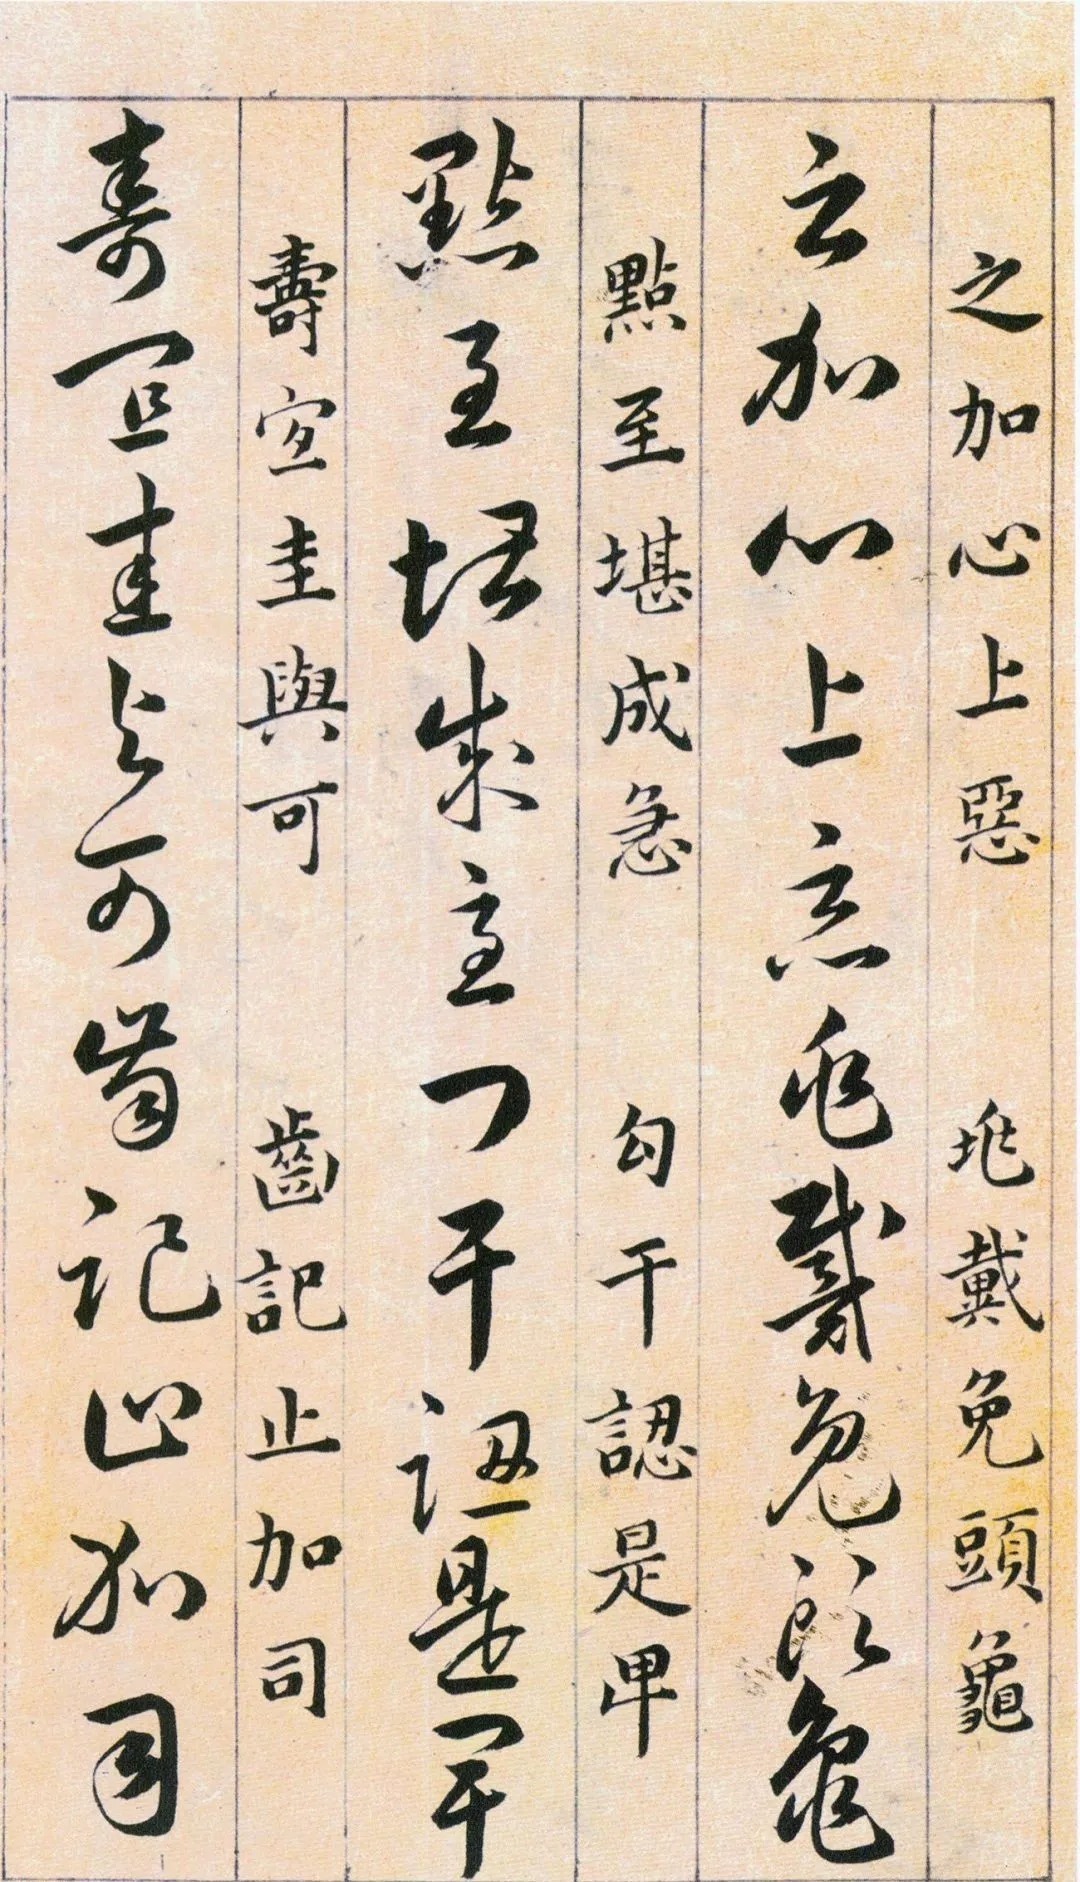 之加心上惡 垗戴免頭龜
之加心上惡兆戴免頭龜
點至堪成急 勾干認是卑
點至堪成急勾干認是卑
壽宜圭與可 齒記止加司
壽宜圭與可齒記止加司